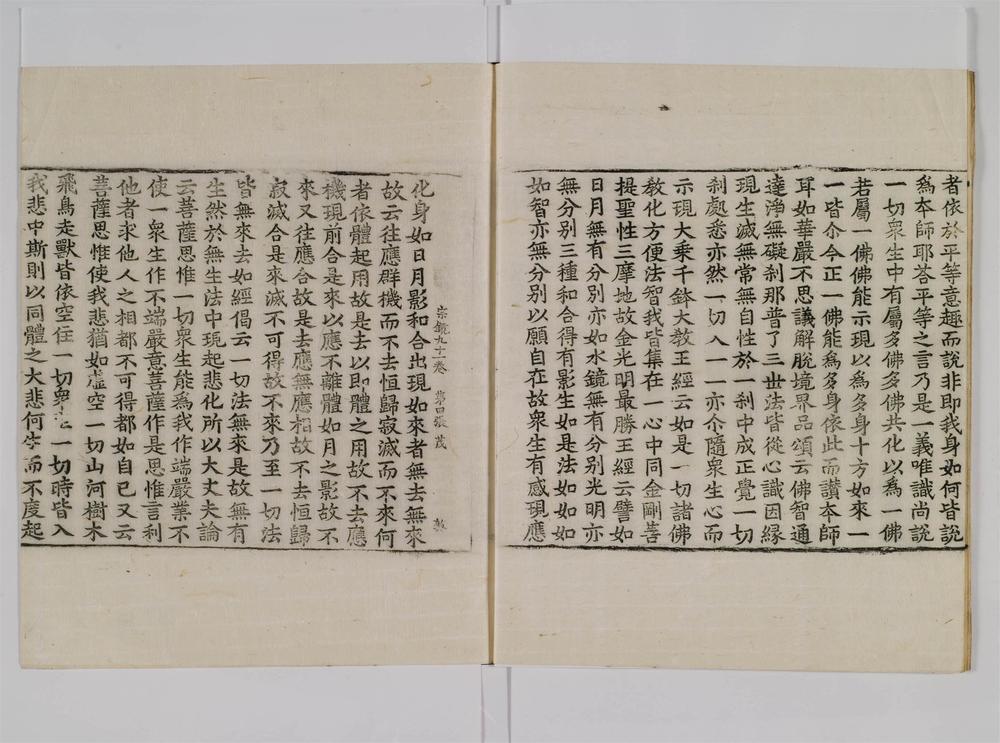 者依於平等意趣而說非即我身如何皆說
爲本師耶荅平等之言乃是一義唯識尚說
一切衆生中有屬多佛多佛共化以爲一佛
若屬一佛佛能示現以爲多身十方如來一
一皆尒今正一佛能爲多身依此而讃本師
耳如華嚴不思議解脫境界品頌云佛智通
達淨無礙刹那普了三世法皆從心識因緣
現生滅無常無自性於一刹中成正覺一切
刹處悉亦然一切入一一亦尒隨衆生心而
示現大乗千鉢大教王經云如是一切諸佛
教化方便法智我皆集在一心中同金剛菩
提聖性三摩地故金光明最勝王經云譬如
日月無有分別亦如水鏡無有分別光明亦
無分別三種和合得有影生如是法如如如
如智亦無分別以願自在故衆生有感現應
宗鏡九十一卷 第四張 茂
化身如日月影和合出現如來者無去無來
故云往應群機而不去恒歸寂滅而不來何
者依體起用故是去以即體之用故不去應
機現前合是來以應不離體如月之影故不
來又往應合故是去應無應相故不去恒歸
寂滅合是來滅不可得故不來乃至一切法
皆無來去如經偈云一切法無來是故無有
生然於無生法中現起悲化所以大丈夫論
云菩薩思惟一切衆生能爲我作端嚴業不
使一衆生作不端嚴意菩薩作是思惟言利
他者求他人之相都不可得都如自已又云
菩薩思惟使我悲猶如虛空一切山河樹木
飛鳥走獸皆依空住一切衆一切時皆入
我悲中斯則以同體之大悲何而不度起